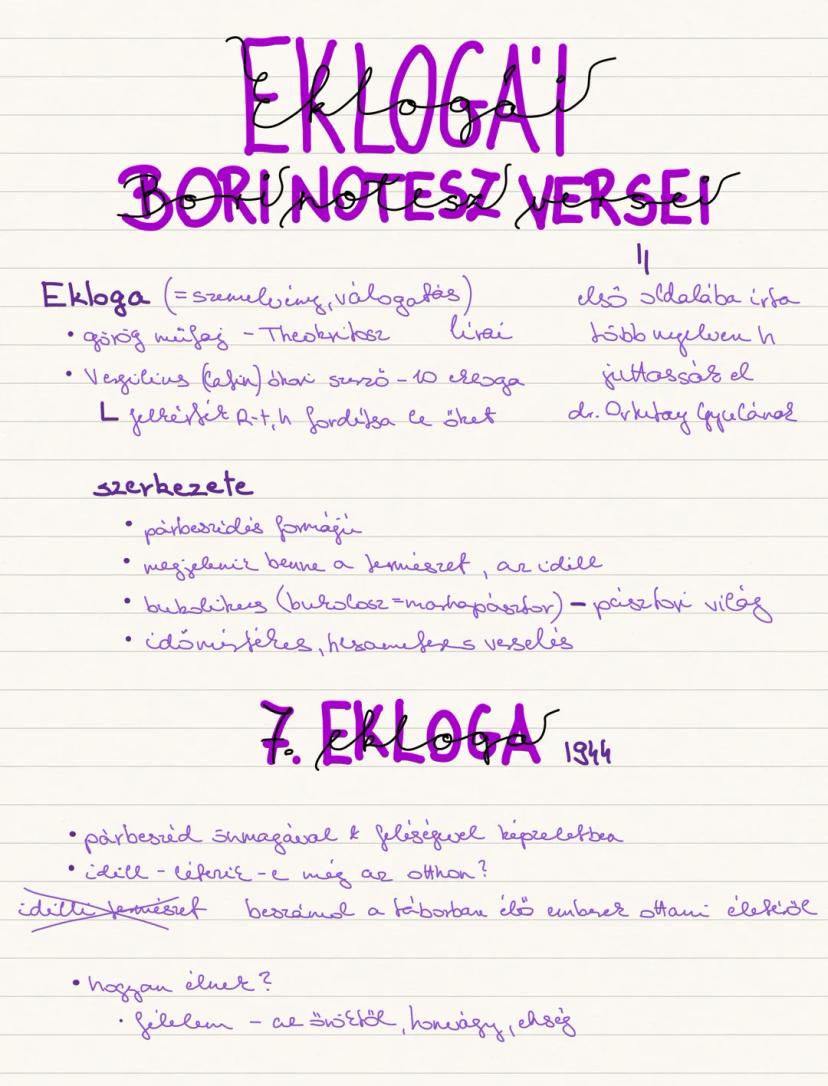 EKLOGÁI
Eklogái
BORI NOTESZ VERSEI
Bori notesz versei
Ekloga (=szemelvény, válogatás)
• görög műfaj - Theokritosz lírai
• Vergilius (latin) ókori szerző - 10 ekloga
L felkérték R-t, h fordítsa le őket
első oldalába írta
több nyelven h
juttassák el
dr. Ortutay Gyulának
szerkezete
• párbeszédes formájú
• megjelenik benne a természet, az idill
• bukolikus (bukolosz=marhapásztor) - pásztori világ
• időmértékes, hexameteres verselés
7. EKLOGA 1944
7. ekloga
• párbeszéd önmagával & feleségével képzeletben
• idill - létezik-e még az otthon?
idilli természet beszámol a táborban élő emberek ottani életéről
• hogyan élnek?
• félelem - az őröktől, honvágy, éhség